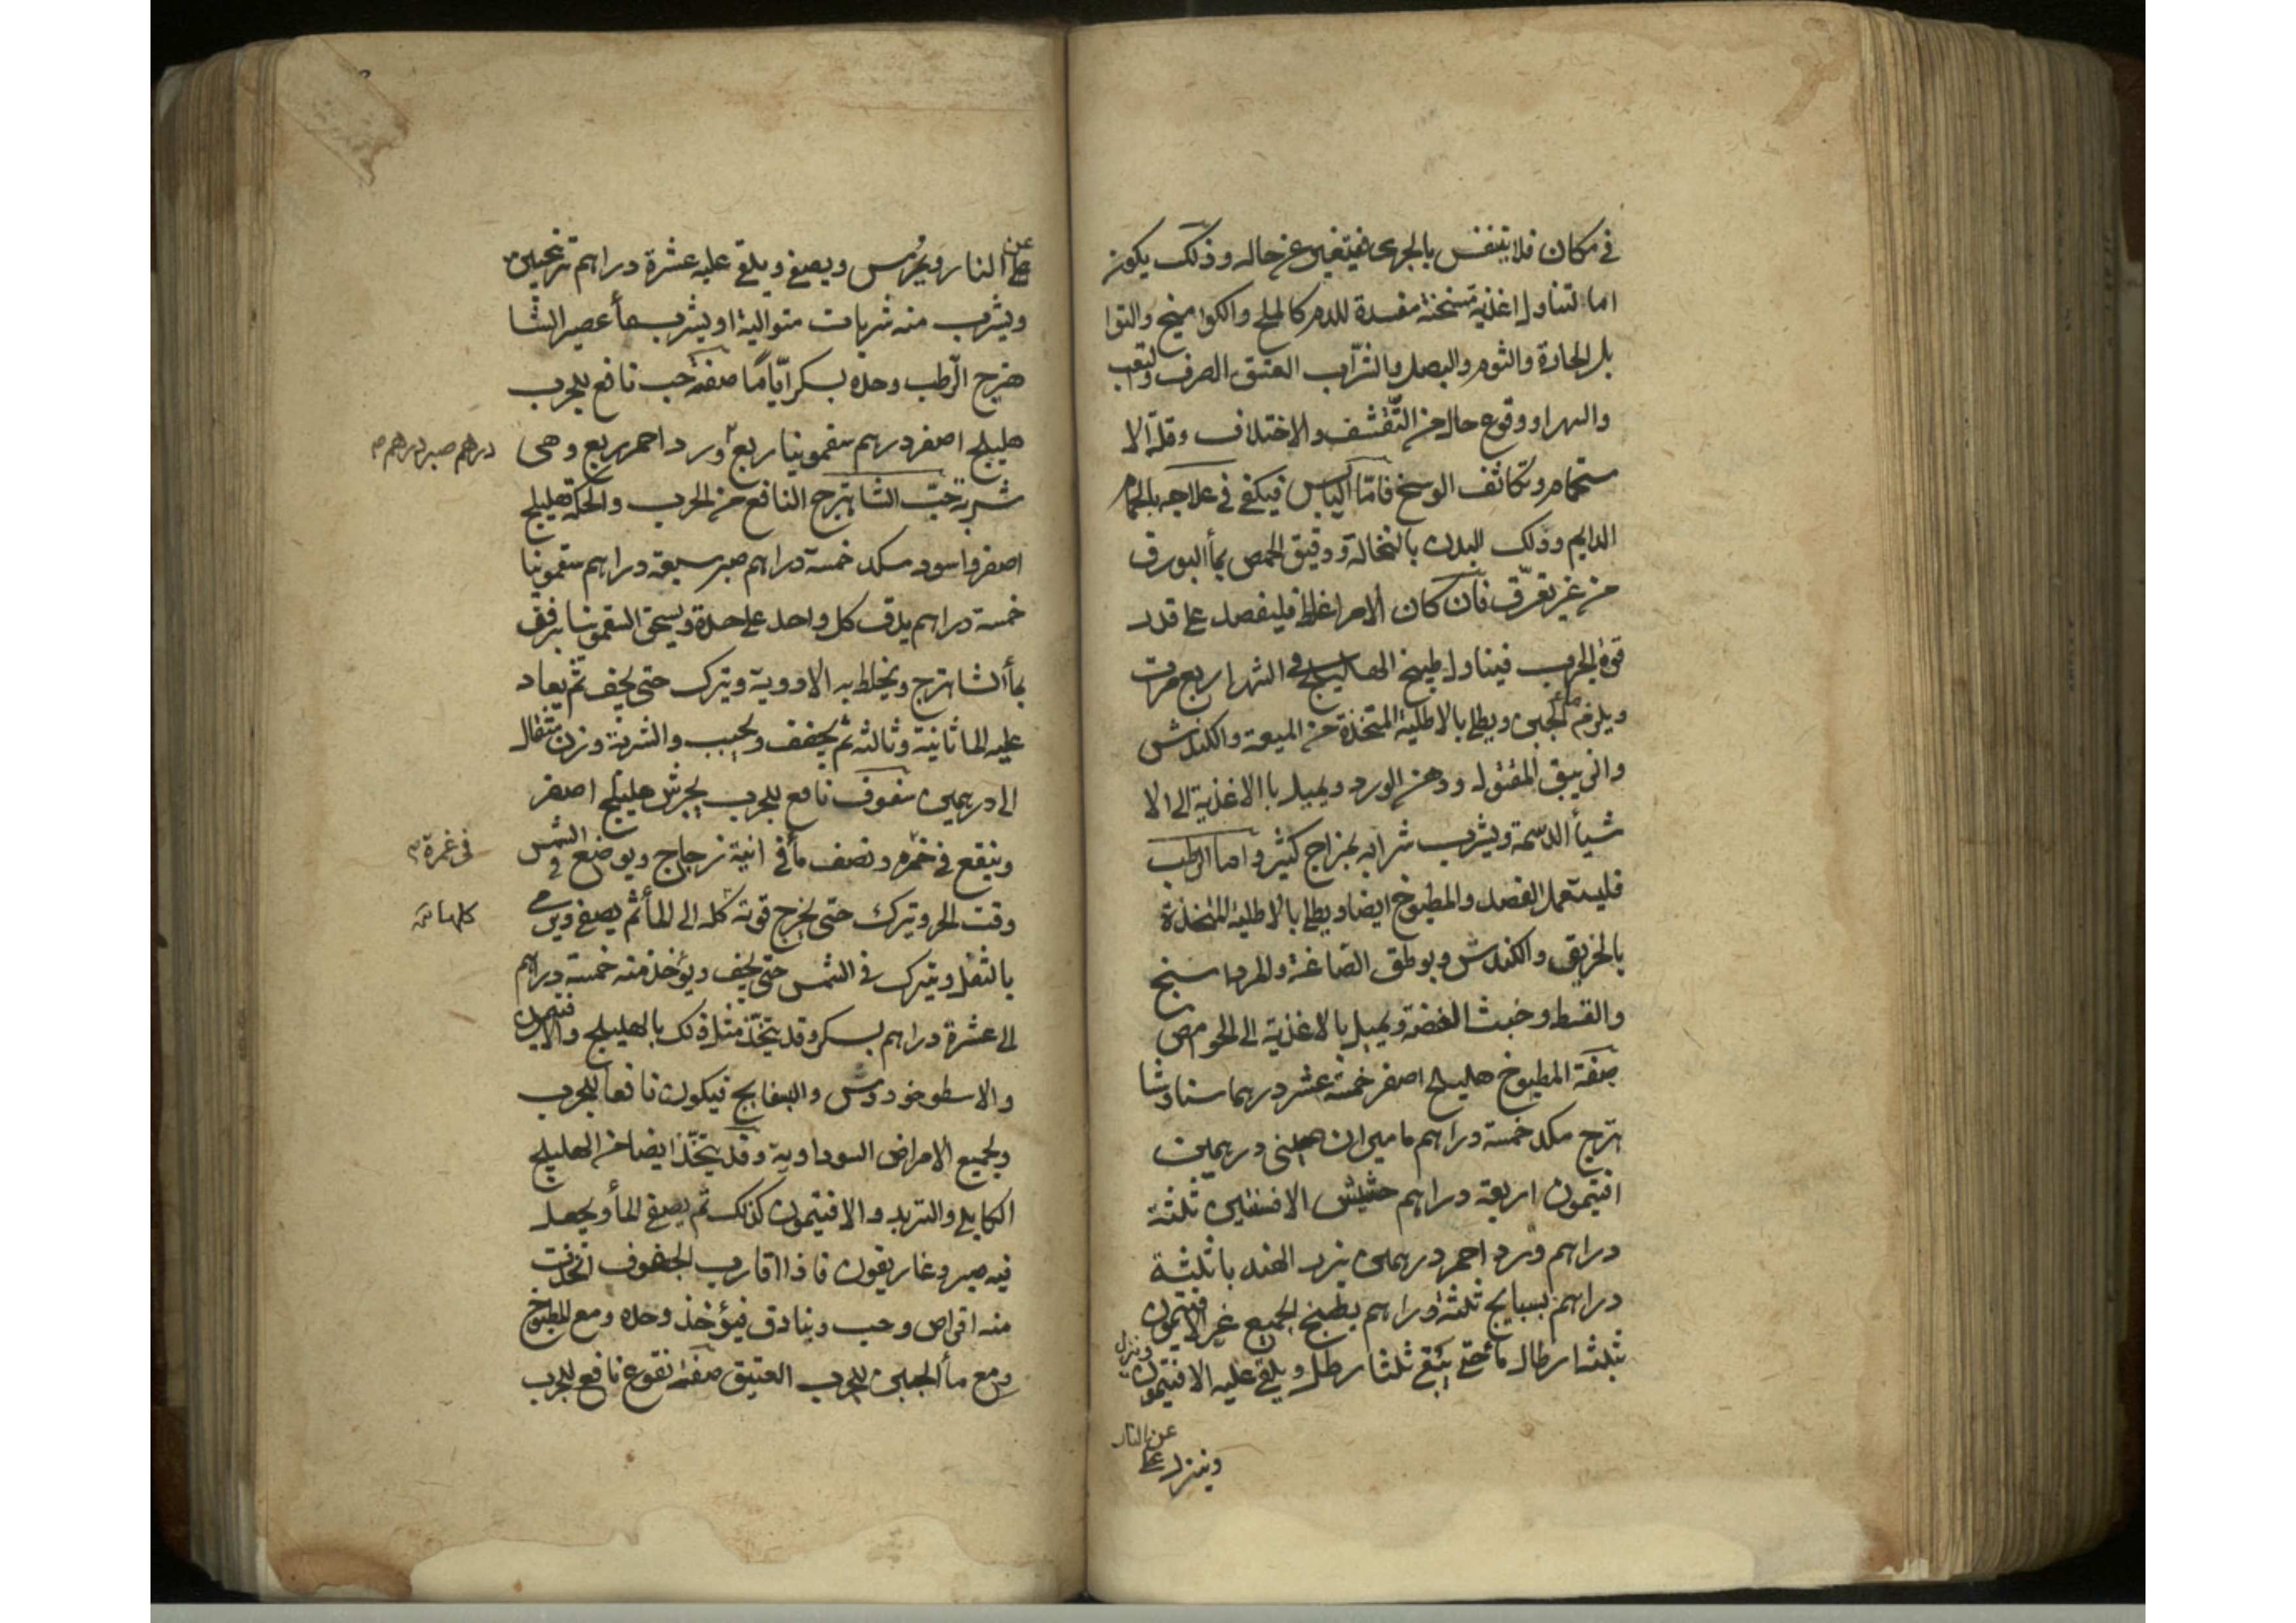 في مكان فلا يتنفس بالجرى فيتغير عن حاله وذلك يكون
اما لتناول اغذية مسخنة مفسدة للدم كالملح والكواميخ والتوا
بل الحادة والثوم والبصل والشراب العتيق الصرف والتعب
والسهر او وقوع حال من التقشف والاختلاف وقلة الا
ستحمام وتكاثف الوسخ فامّا اليابس فيكفي في علاجه بالحمام
الدايم ودلك البدن بالنخالة ودقيق الحمص بمأ البورق
من غير تعرّق فان كان الامر اغلظ فليفصد على قدر
قوة الجرب فيتناول طبيخ الهاليلج في الشهر اربع مرات
ويلزم مأ الجبن ويطلى بالاطلية المتخذة من الميعة والكندش
والزيبق المقتول ودهن الورد ويميل بالاغذية الى الا
شيأ الدسمة ويشرب شرابه بمزاج كثير واما الرطب
فليستعمل الفصد والمطبوخ ايضا ويطلى بالاطلية المتخذة
بالخربق والكندش وبورطق الصاغة والمرداسنج
والقسط وخبث الفضة ويميل بالاغذية الى الحوامض
صفة المطبوخ هليلج اصفر خمسة عشر درهما سنا وشا
هترج مكد خمسة دراهم ماميران صيني درهمين
افتيمون اربعة دراهم حشيش الافسنتين ثلثة
دراهم ورد احمر درهمين بزر الهندبا ثلثة
دراهم بسبايج ثلثة دراهم يطبخ الجميع غير الافتيمون
بثلثة ارطال مأ حتى يبقى ثلثا رطل ويلقى عليه الافتيمون وينزل
وينزل على عن النار
على عن النار ويمرس ويصفى ويلقى عليه عشرة دراهم ترنجبين
ويشرب منه شربات متوالية او يشرب مأ عصير الشا
هترج الرطب وحده بسكر ايّامًا صفة حب نافع للجرب
هليلج اصفر درهم سقمونيا ربع ورد احمر ربع وهى
درهم صبر درهم صح
شربة حبّ الشاهترج النافع من الجرب والحكة هليلج
اصفر واسود مكد خمسة دراهم صبر سبعة دراهم سقمونيا
خمسة دراهم يدق كل واحد على حدة ويسحق السقمونيا برفق
بمأ الشاهترج ويخلط به الادوية ويترك حتى يجف ثم يعاد
عليه الما ثانية وثالثه ثم يجفف ويحبب والشربة وزن مثقال
الى درهمين سفوف نافع للجرب يجرش هليلج اصفر
وينقع في خمره ونصف مأ في انية زجاج ويوضع في الشمس
في غمرة
وقت الحر ويترك حتى يخرج قوته كله الى المأ ثم يصفى ويرمى
كلها
بالثفل ويترك في الشمس حتى يجف ويؤخذ منه خمسة دراهم
الى عشرة دراهم بسكر وقد يتخذ مثل ذلك بالهليلج والافتيمون
والاسطوخودوس والبسفايج فيكون نافعا للجرب
ولجميع الامراض السوداوية وقد يتخذ ايضا من الهليلج
الكابلى والتربد والافتيمون كذلك ثم يصفى المأ ويجعل
فيه صبر وغاريقون فاذا قارب الجفوف اتخذت
منه اقراص وحب وبنادق فيؤخذ وحده ومع المطبوخ
ومع مأ الجبن للجرب العتيق صفة نقوع نافع للجرب